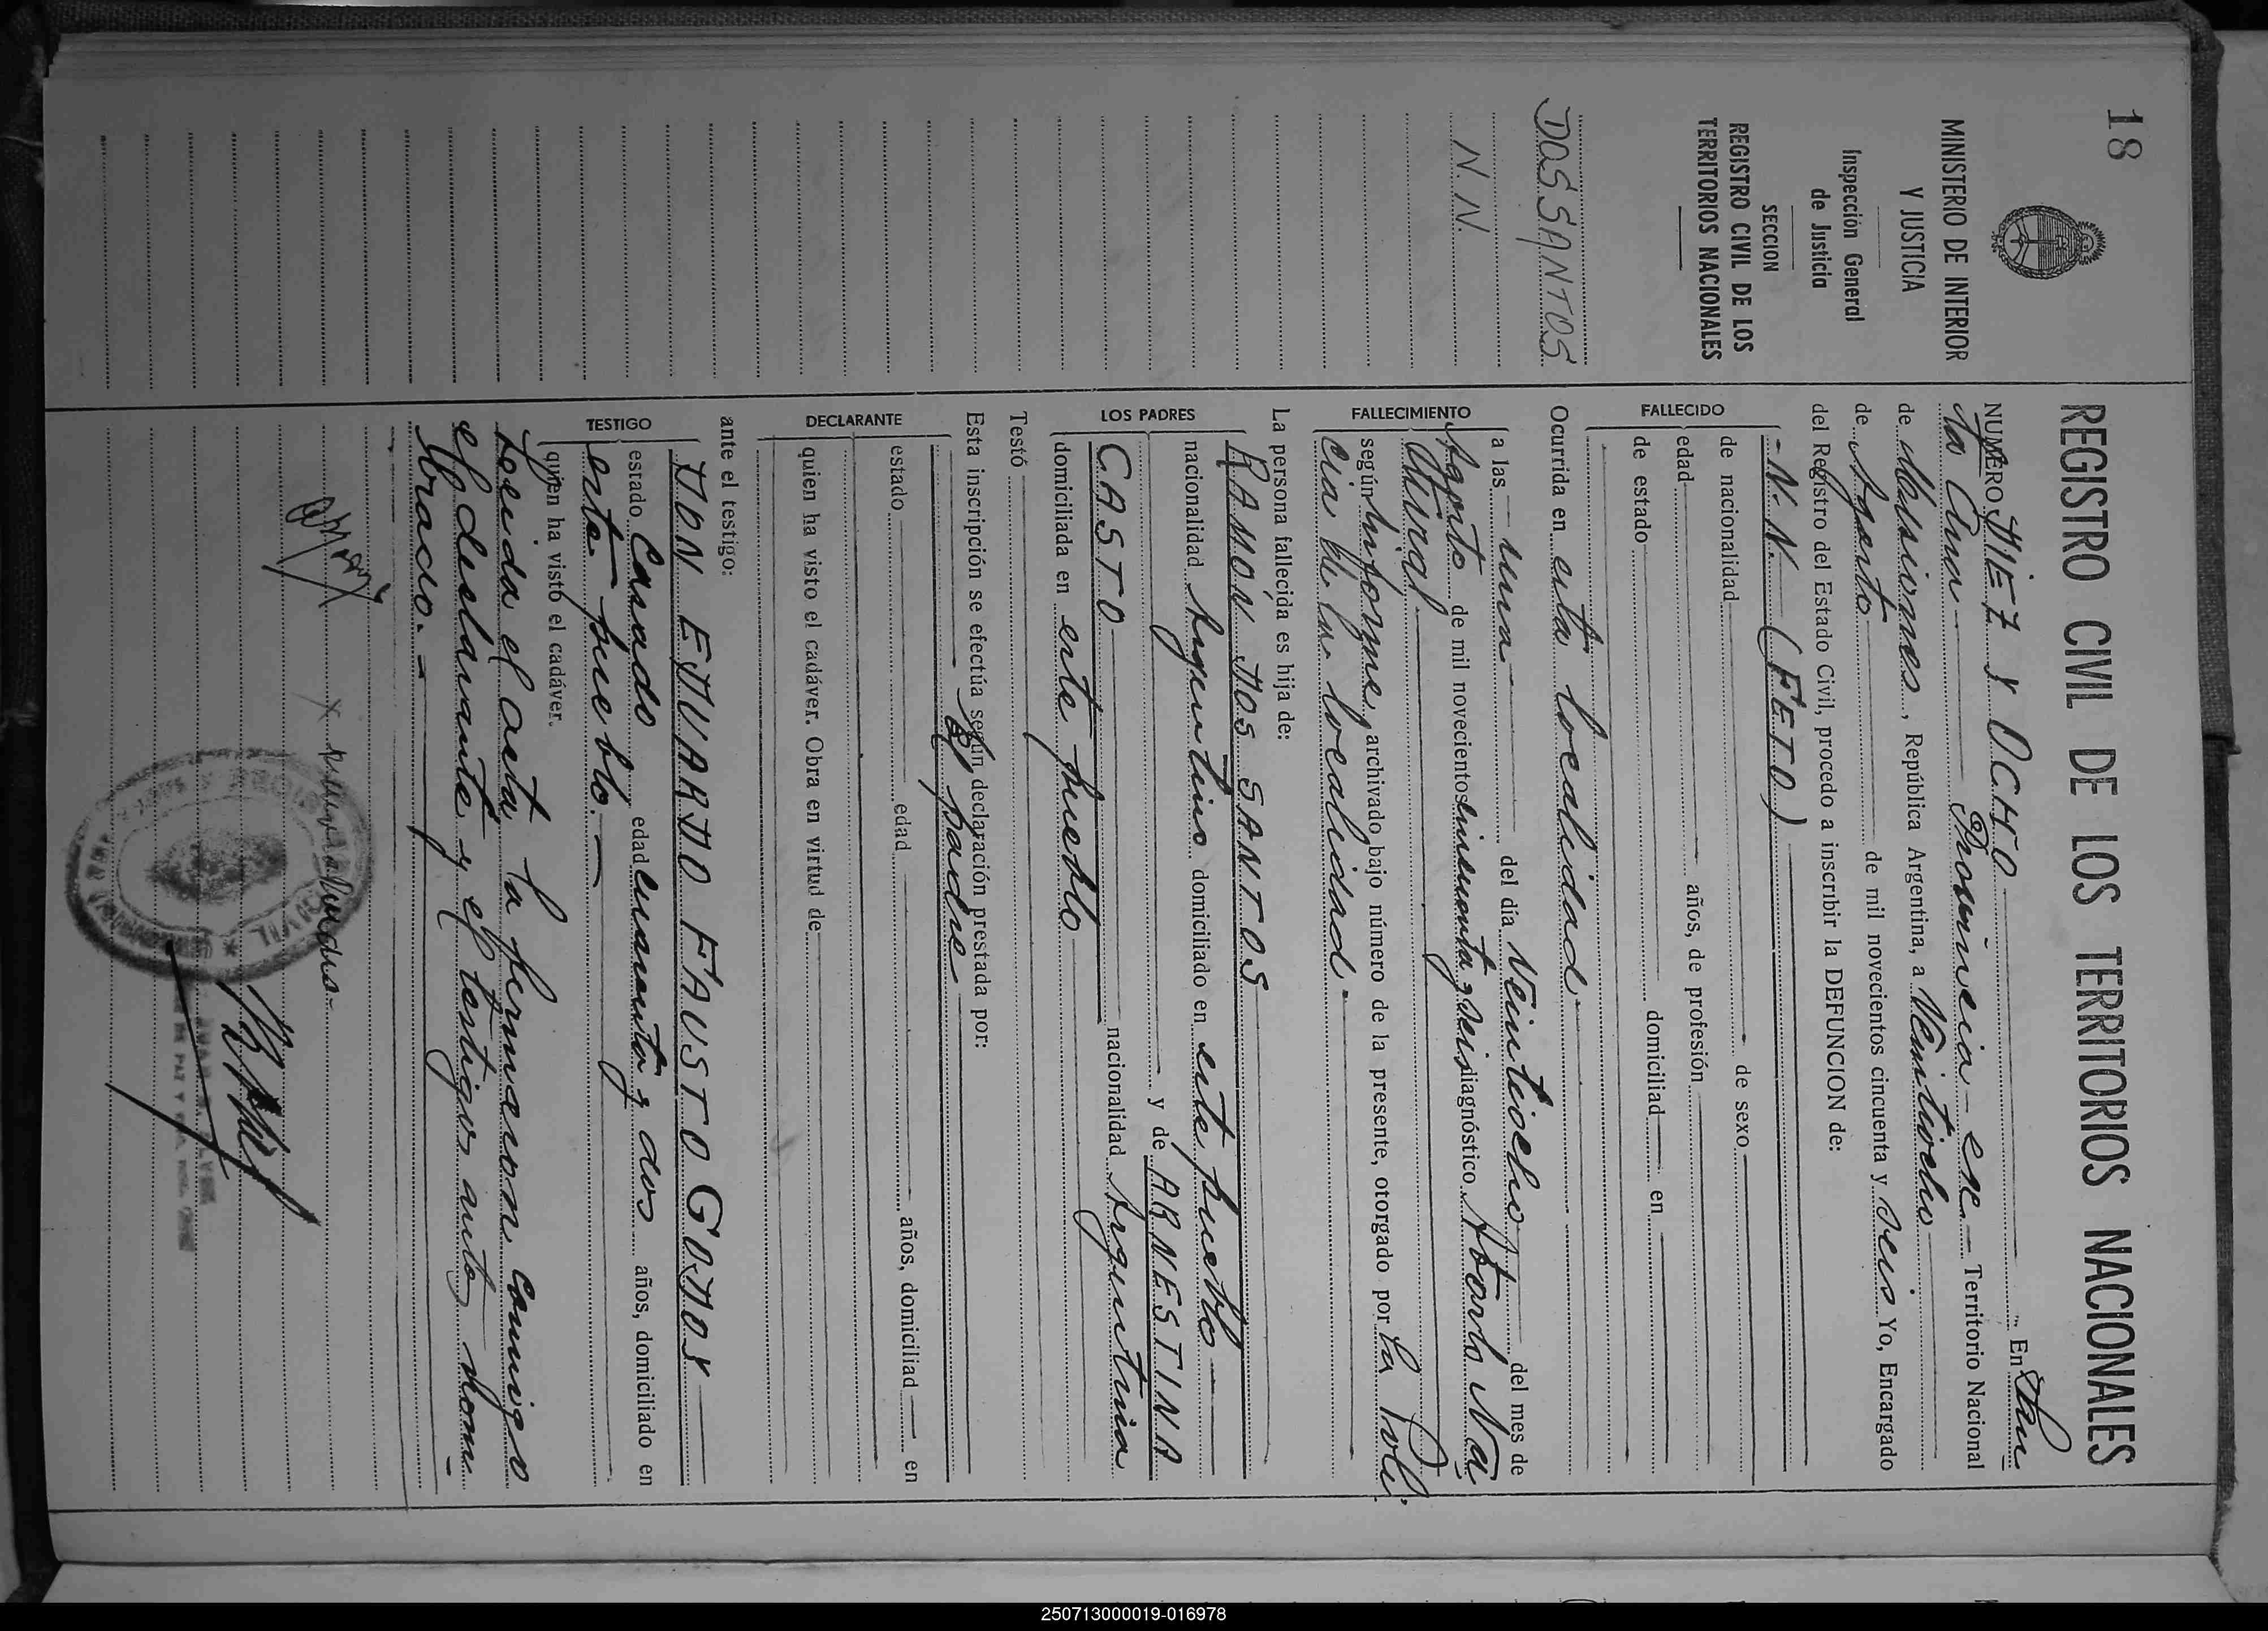 18
MINISTERIO DE INTERIOR
Y JUSTICIA
Inspección General
de Justicia
SECCION
REGISTRO CIVIL DE LOS
TERRITORIOS NACIONALES
DOS SANTOS
N. N.
REGISTRO CIVIL DE LOS TERRITORIOS NACIONALES
NUMERO DIEZ Y OCHO En San
ta Ana Provincia en Territorio Nacional
de Misiones, República Argentina, a Veintiocho
de Agosto de mil novecientos cincuenta y seis Yo, Encargado
del Registro del Estado Civil, procedo a inscribir la DEFUNCION de:
FALLECIDO
- N. N. (FETO)
de nacionalidad de sexo
edad años, de profesión
de estado domiciliad en
Ocurrida en esta localidad.
FALLECIMIENTO
a las una del día Veintiocho del mes de
Agosto de mil novecientos cincuenta y seis diagnóstico Aborto Na
tural
según informe, archivado bajo número de la presente, otorgado por La Poli
cia de la localidad.
La persona fallecida es hija de:
LOS PADRES
RAMON DOS SANTOS
nacionalidad Argentino domiciliado en este pueblo
y de ARNESTINA
CASTO nacionalidad Argentina
domiciliada en este pueblo
Testó
Esta inscripción se efectúa según declaración prestada por:
DECLARANTE
El padre
estado edad años, domiciliad en
quien ha visto el cadáver. Obra en virtud de
ante el testigo:
TESTIGO
DON EDUARDO FAUSTO GODOY
estado Casado edad cuarenta y dos años, domiciliado en
este pueblo.
quien ha visto el cadáver.
Leida el acta, la firmaron conmigo
el declarante y el testigo antes nom
brado.
250713000019-016978